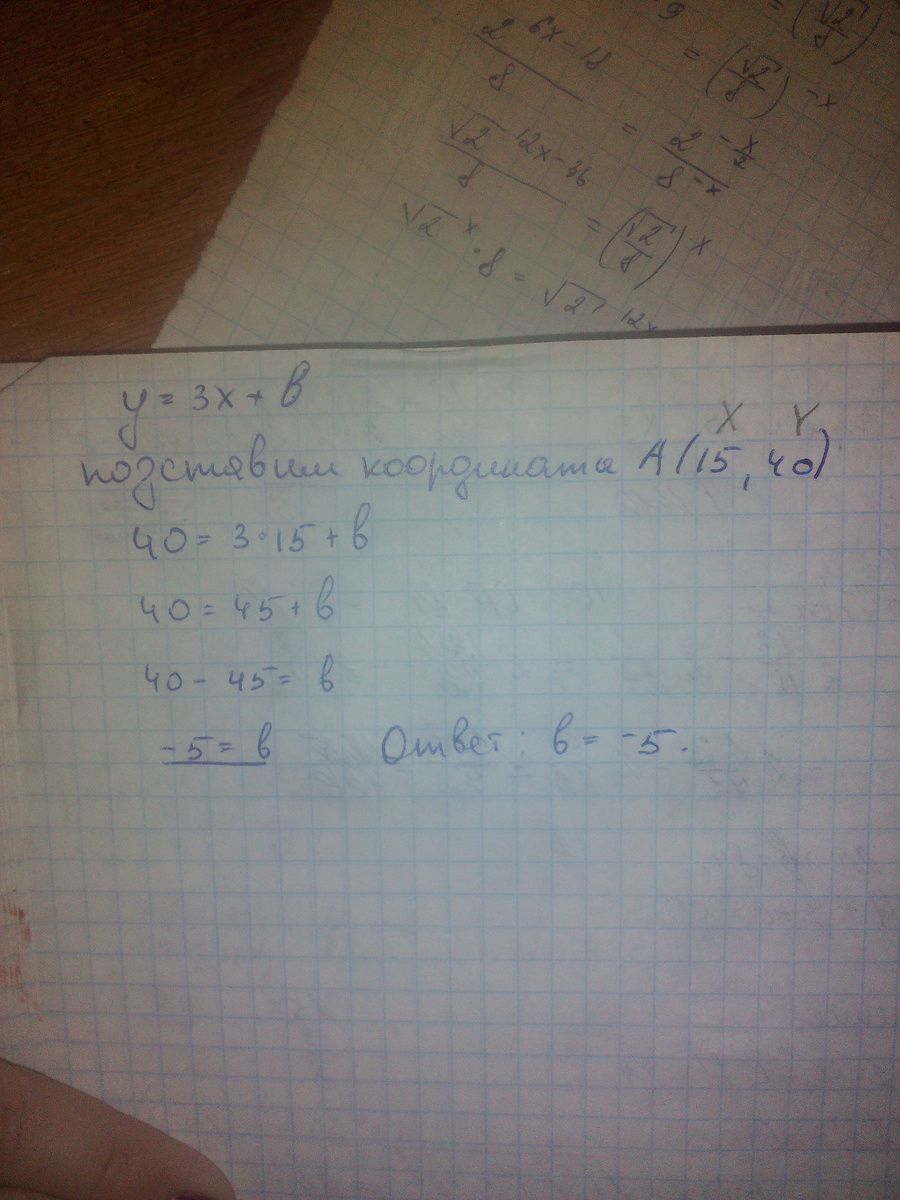 9 = (√2/8)
2^(6x-18)/8 = (√2/8)^(-x)
√2^(12x-36)/8 = 2^(-x/2)/8^(-x)
√2^x · 8 = (√2/8)^x
√2^(12x)
y = 3x + b
X Y
подставим координата A(15, 40)
40 = 3·15 + b
40 = 45 + b
40 - 45 = b
-5 = b Ответ: b = -5.